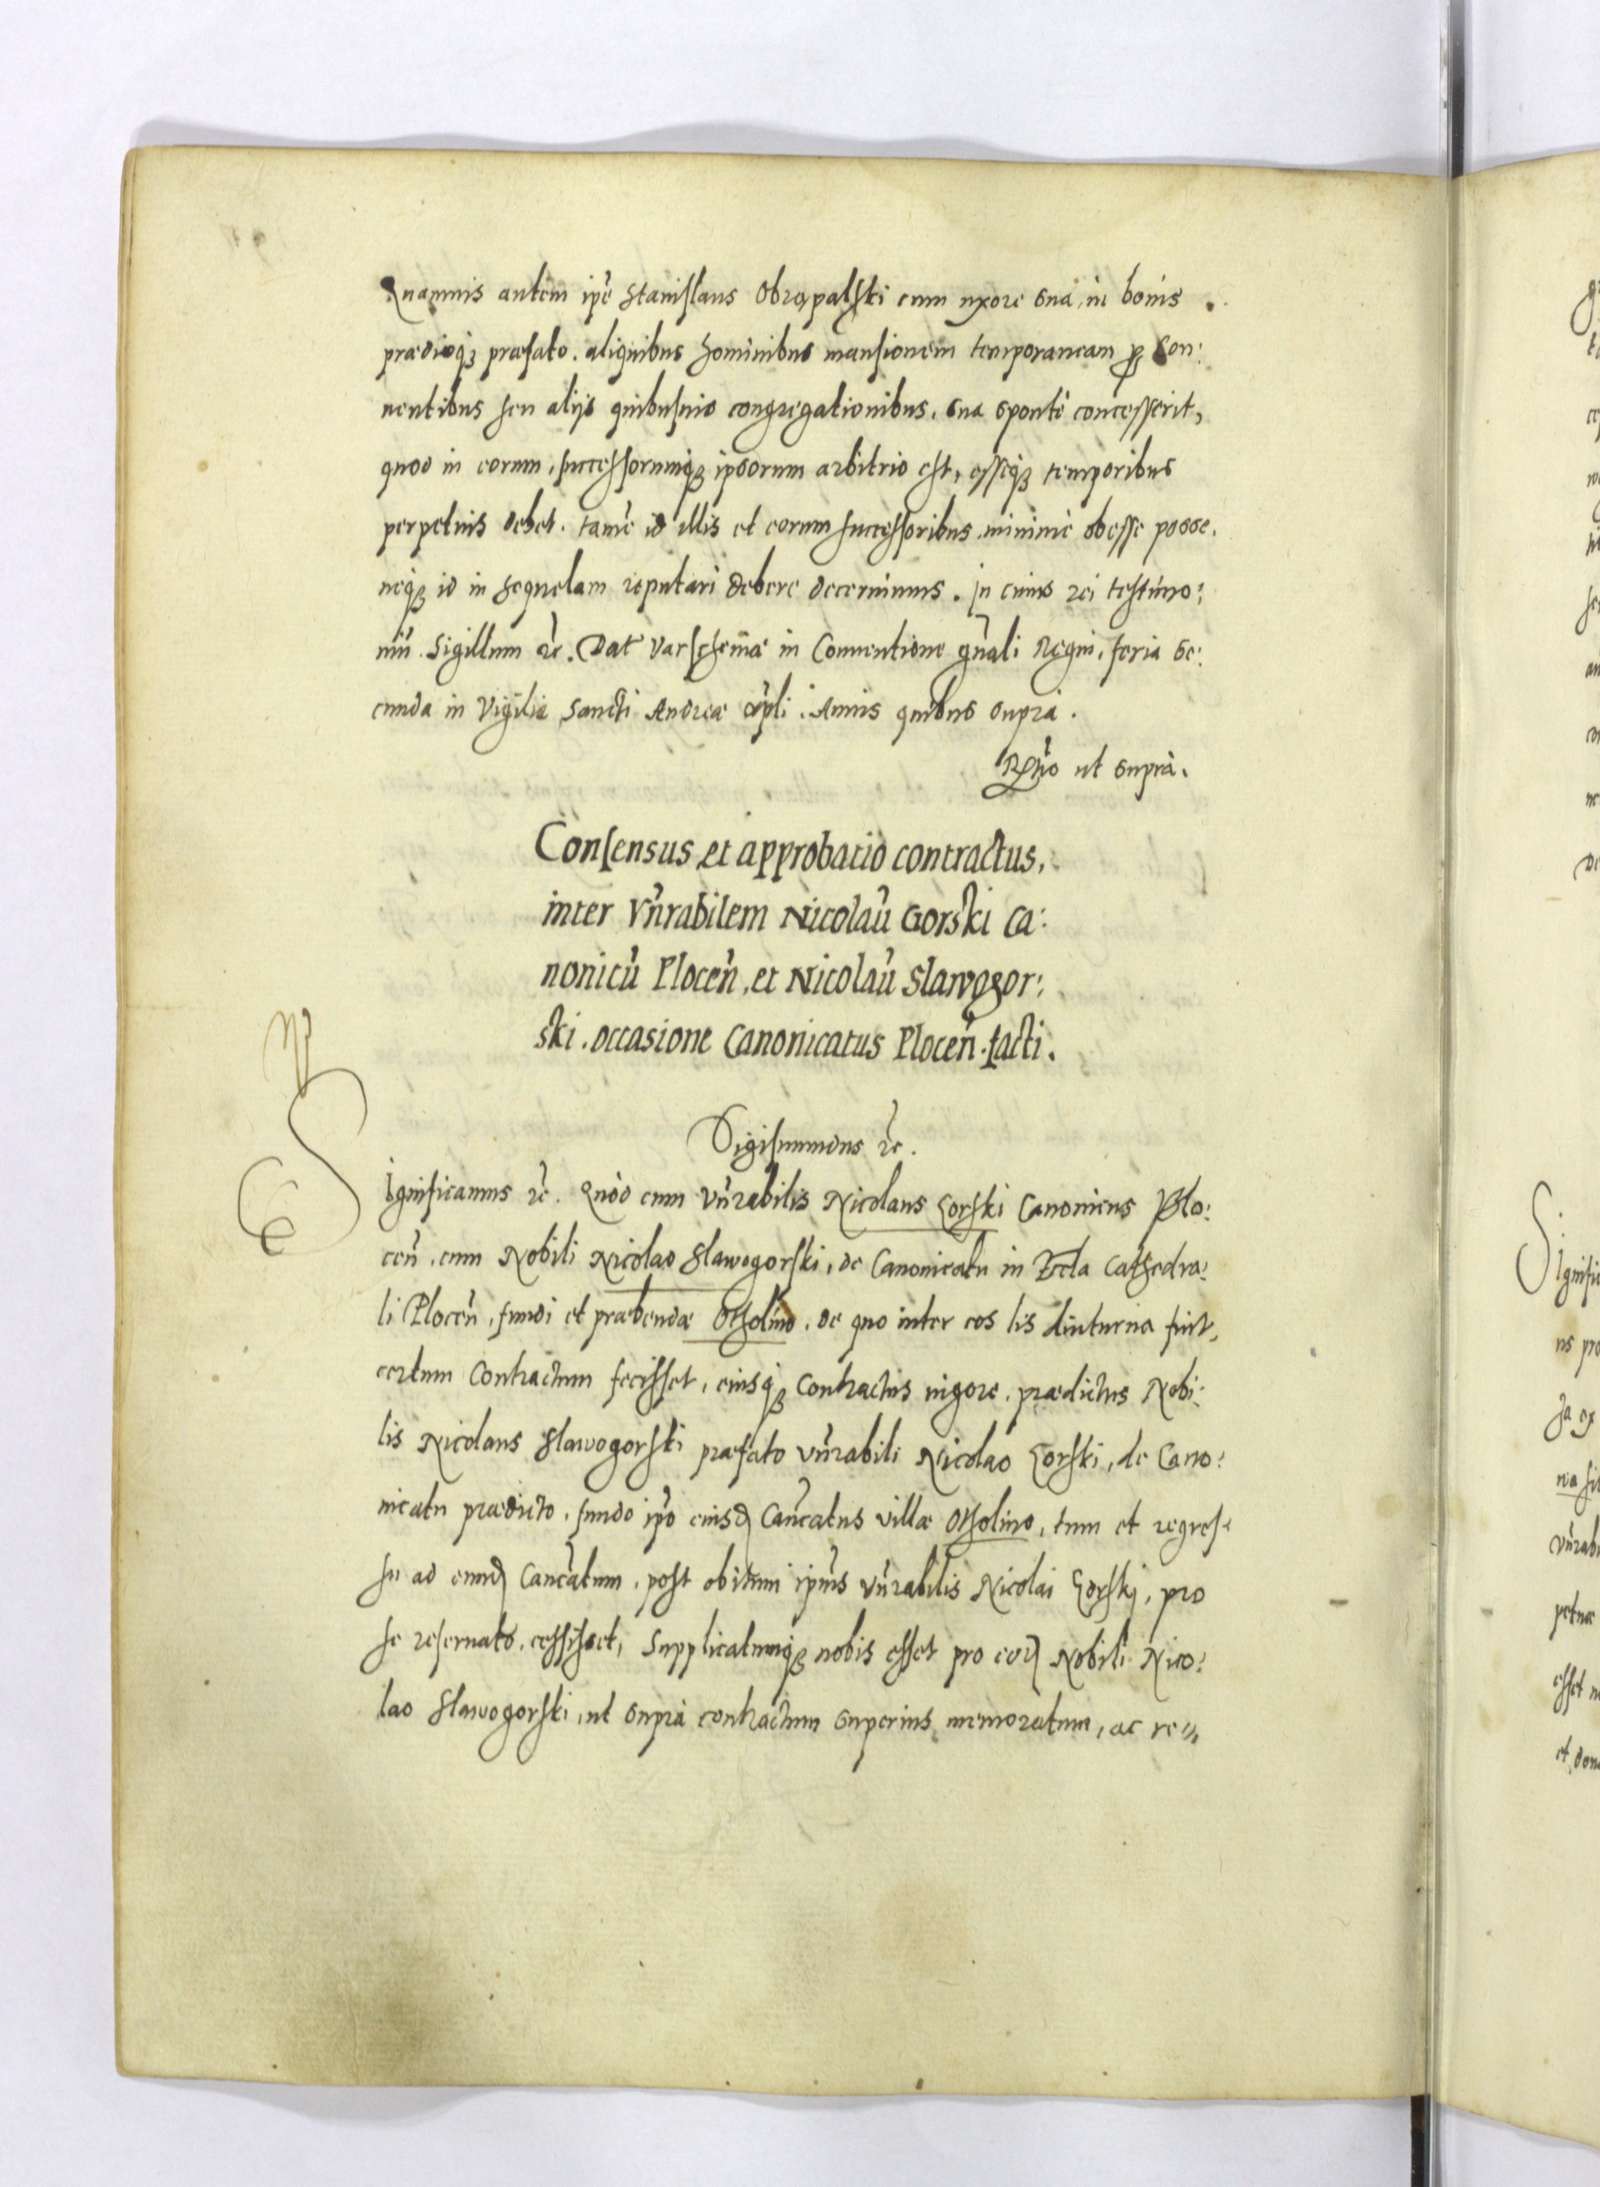 Quamuis autem ipẽ Stanislaus Obrąpalski cum uxore sua in bonis
prædioq; præfato. aliquibus hominibus mansionem temporaneam p con:
uentibus seu alijs quibusuis congregationibus. sua spontè concesserit,
quod in eorum, successorumq; ipsorum arbitrio est, esseq; temporibus
perpetuis debet. tamẽ id illis et eorum successoribus minimè obesse posse.
neq; id in sequelam reputari debere decernimus. In cuius rei testimo:
niũ Sigillum &c. Dat Varschewiæ in Conuentione gñali Regni, feria se:
cunda in Vigilia Sancti Andreæ apli. Annis quibus supra.
Rtio ut suprà.
Consensus et approbatio contractus,
inter Vñrabilem Nicolaũ Gorski Ca:
nonicũ Plocen̄, et Nicolaũ Slawogor:
ski. occasione Canonicatus Plocen̄. facti.
Sigismundus &c.
Significamus &c. Quòd cum Vñrabilis Nicolaus Gorski Canonicus Plo:
cen̄, cum Nobili Nicolao Slawogorski, de Canonicatu in Eccla Cathedra:
li Plocen̄, fundi et præbendæ Otholino, de quo inter eos lis diuturna fuit,
certum Contractum fecisset, eiusq; Contractus uigore, prædictus Nobi:
lis Nicolaus Slawogorski præfato Vñrabili Nicolao Gorski, de Cano:
nicatu prædicto, fundo ipõ eiusd Cañcatus villæ Otholino, tum et regres:
su ad eund Cañcatum, post obitum ipius Vñrabilis Nicolai Gorski, pro
se reseruato, cessisset, Supplicatumq; nobis esset pro eod Nobili Nico:
lao Slawogorski, ut suprà contractum superius memoratum, ac re„